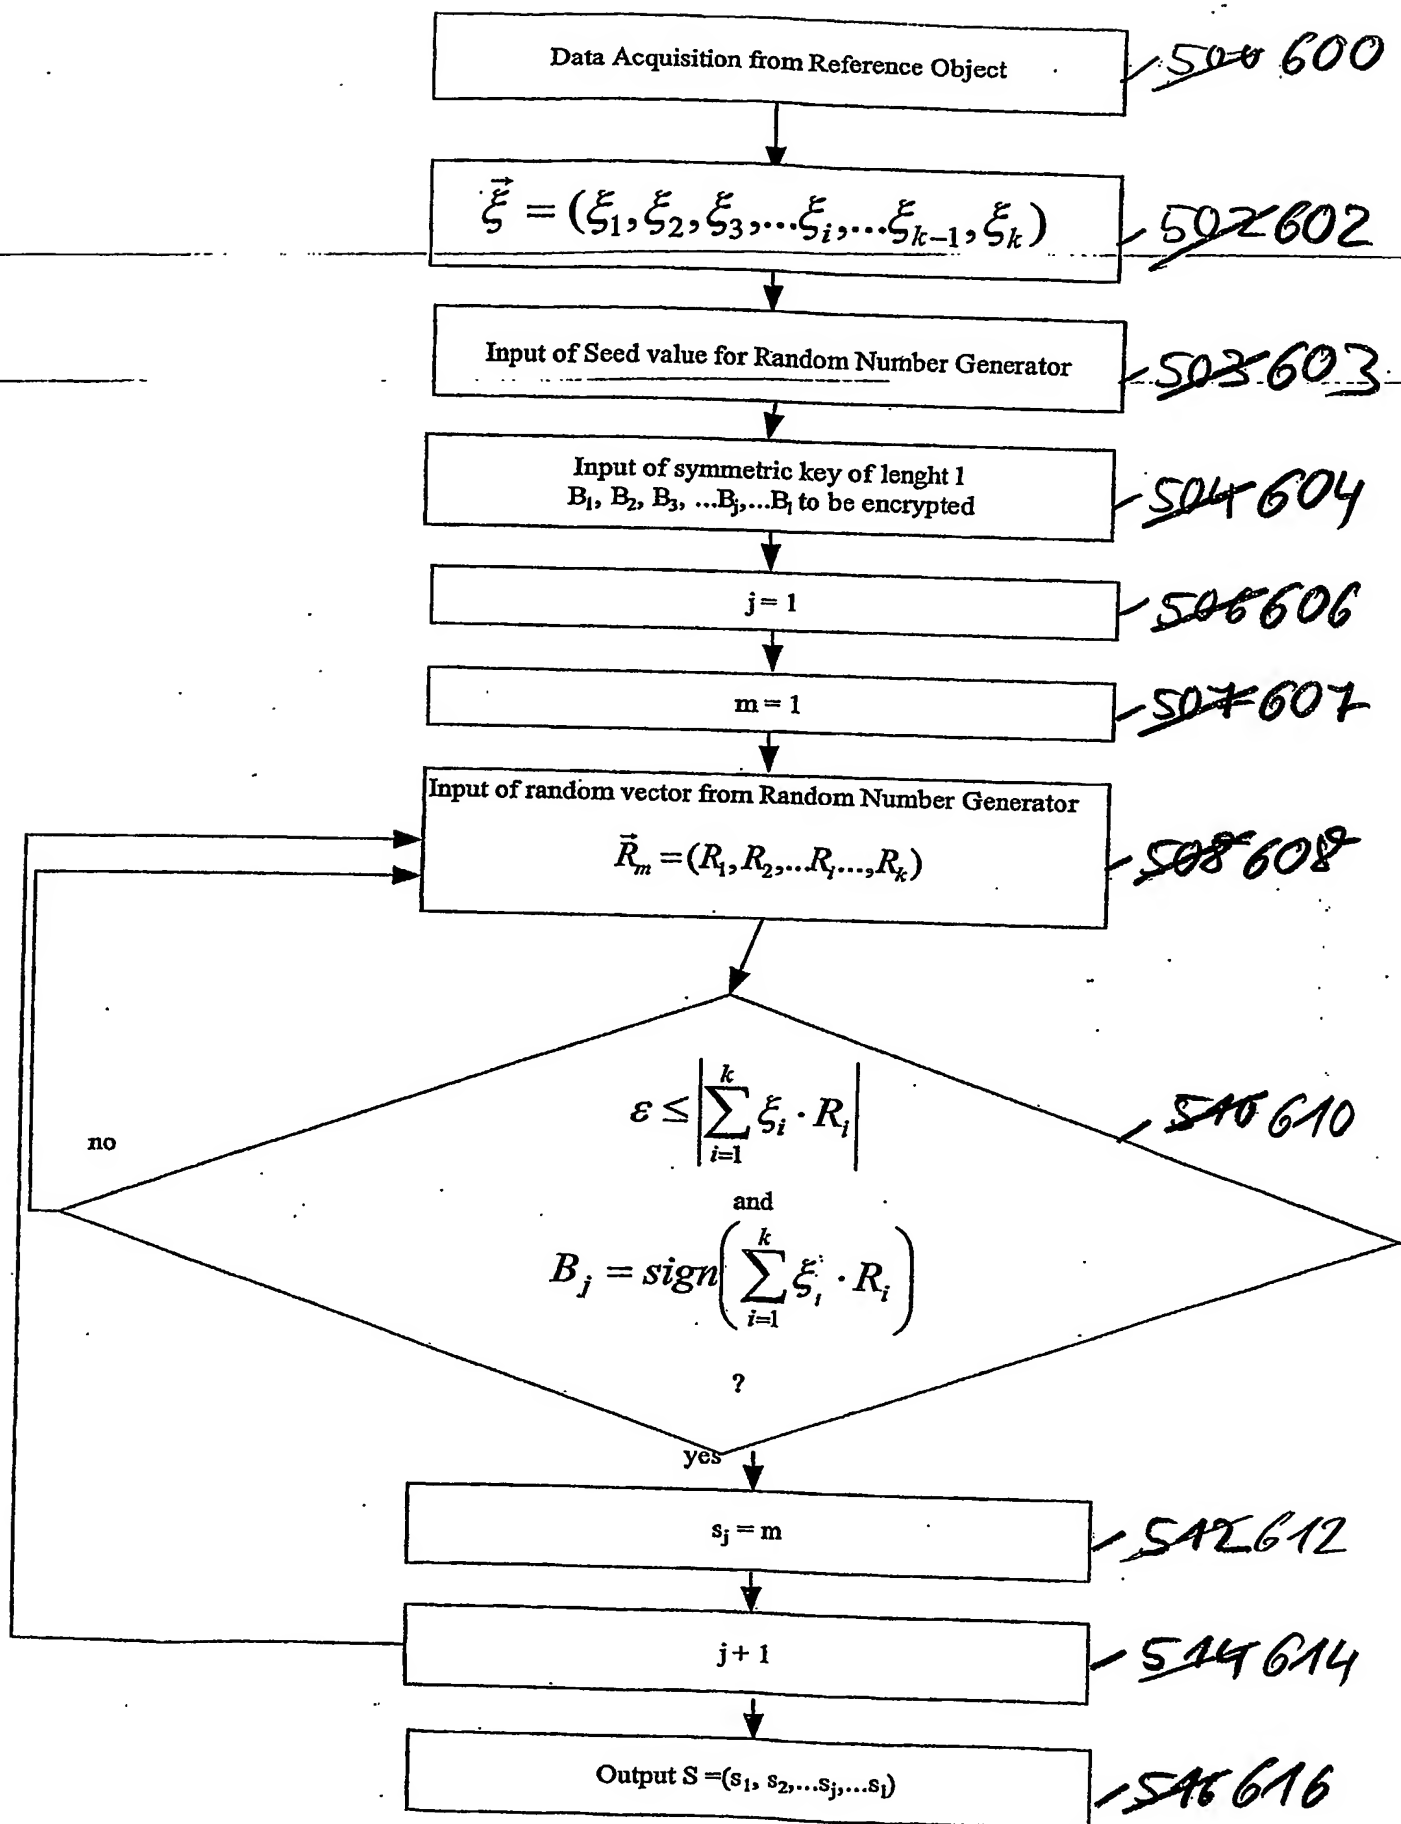 Data Acquisition from Reference Object
500 600
ξ⃗ = (ξ₁, ξ₂, ξ₃, ...ξᵢ, ...ξₖ₋₁, ξₖ)
502 602
Input of Seed value for Random Number Generator
503 603
Input of symmetric key of lenght l
B₁, B₂, B₃, ...Bⱼ,...Bₗ to be encrypted
504 604
j = 1
506 606
m = 1
507 607
Input of random vector from Random Number Generator
R⃗ₘ = (R₁, R₂, ...Rᵢ..., Rₖ)
508 608
ε ≤ |∑ᵢ₌₁ᵏ ξᵢ · Rᵢ|
510 610
no
and
Bⱼ = sign(∑ᵢ₌₁ᵏ ξᵢ · Rᵢ)
?
yes
sⱼ = m
512 612
j + 1
514 614
Output S =(s₁, s₂,...sⱼ,...sₗ)
516 616